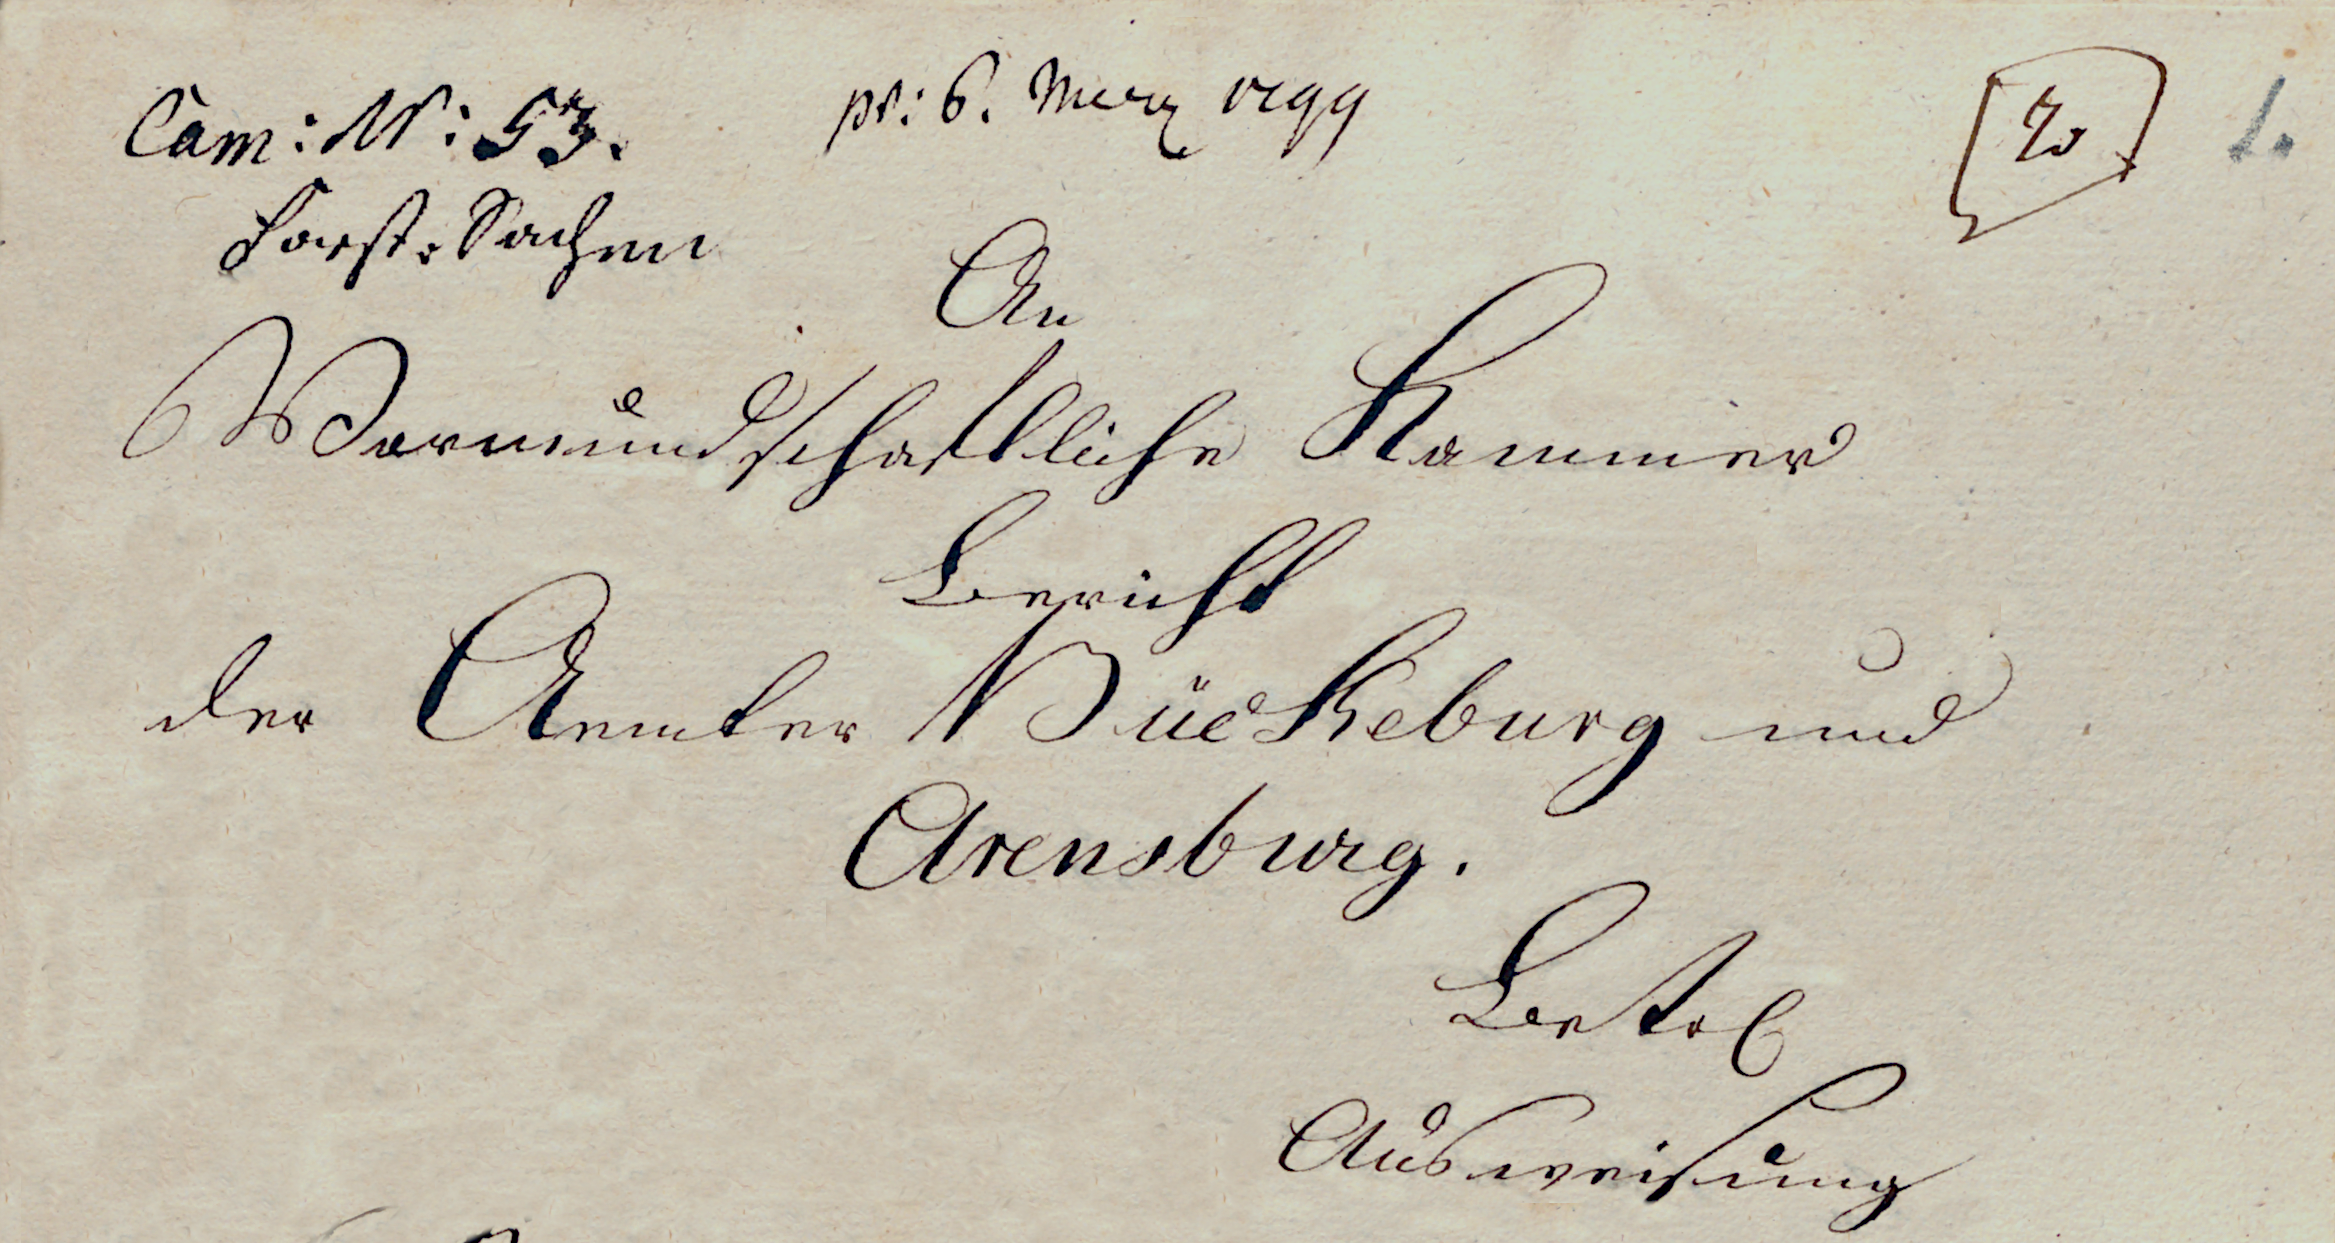 Cam: N: 53. pr: 6. Merz 1799
20 1.
Forst-Sachen
An
Vormundschaftliche Kammer
Bericht
der Aemter Bückeburg und
Arensburg.
Betr
Ausweisung